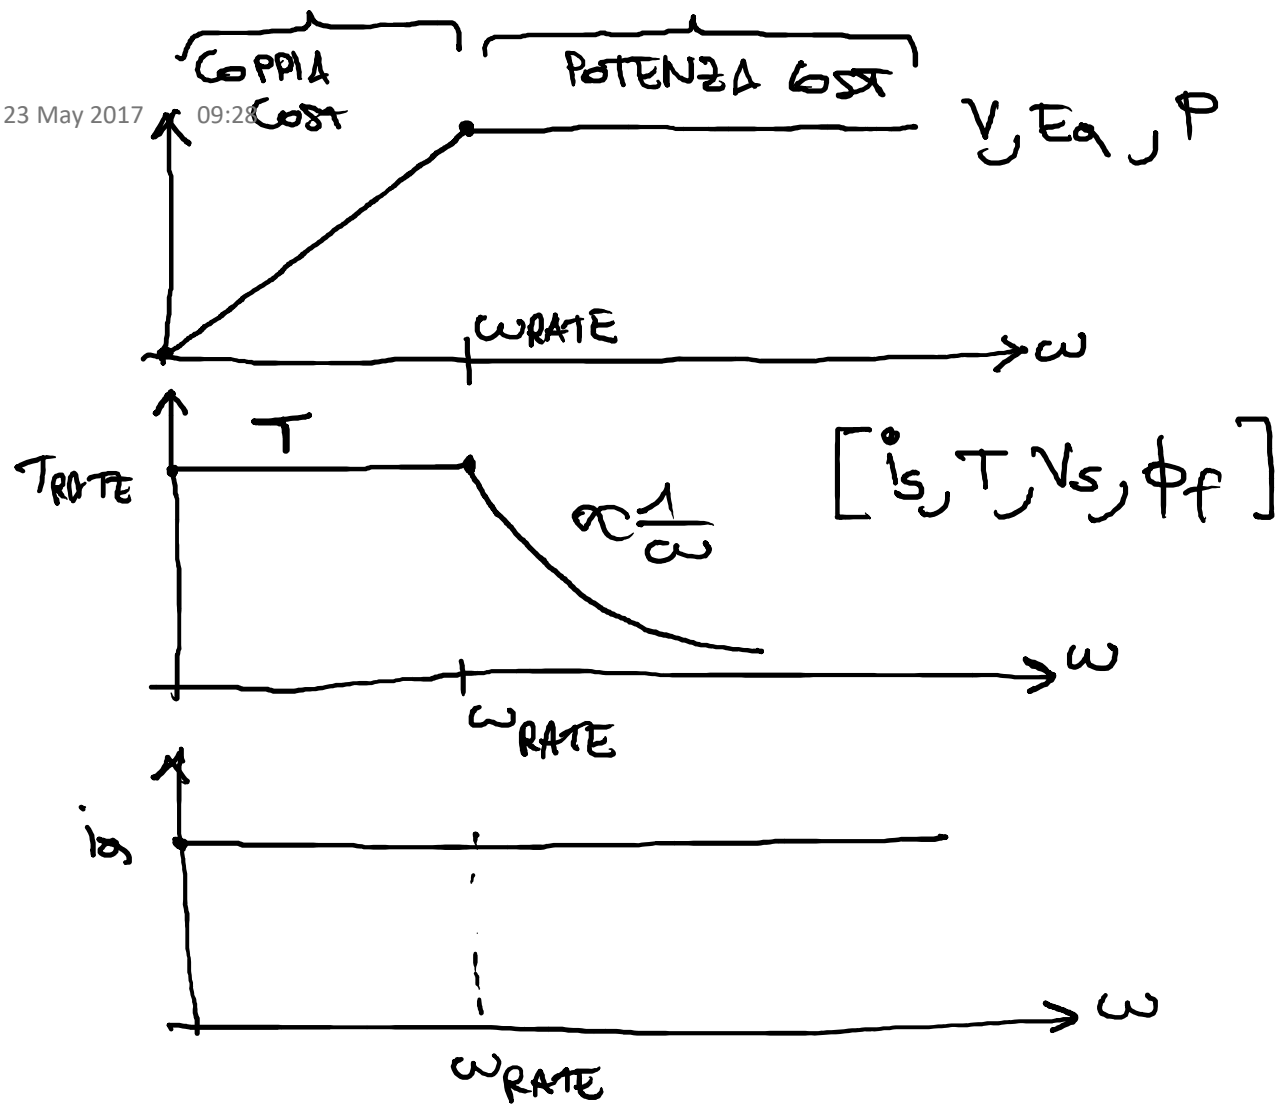 COPPIA
COST
POTENZA COST
23 May 2017 09:28
V, Ea, P
ωRATE
ω
T
TRATE
[is, T, Vs, ϕf]
∝ 1/ω
ω
ωRATE
ia
ω
ωRATE